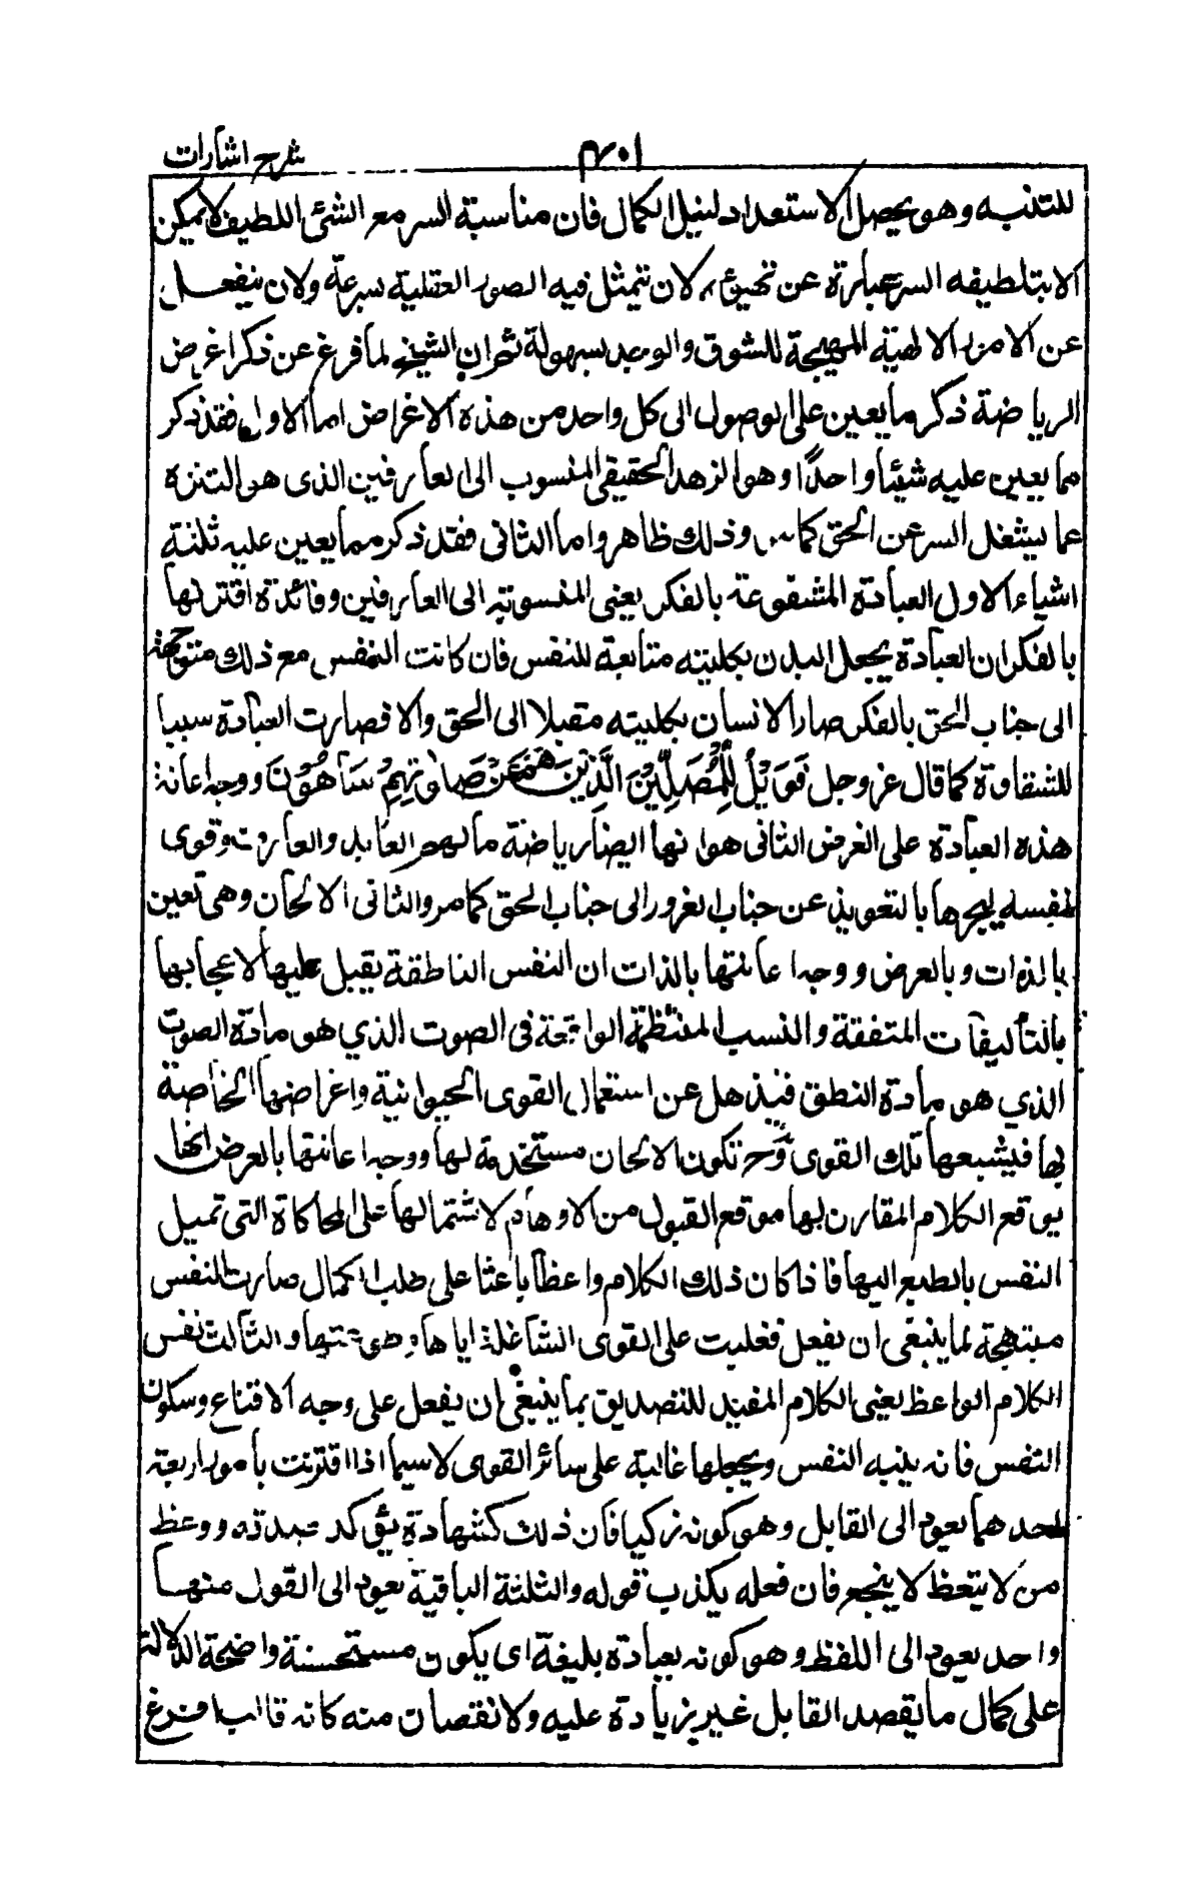 شرح اشارات
للتنبه وهو يحصل الاستعداد لنيل الكمال فان مناسبة السر مع الشئ اللطيف لا يمكن
الا بتلطيفه السر عبارة عن تهيئه لان تتمثل فيه الصور العقلية بسرعة ولان ينفعل
عن الامور الالهية المهيجة للشوق والوجد بسهولة ثم ان الشيخ لما فرغ عن ذكر اغراض
الرياضة ذكر ما يعين على الوصول الى كل واحد من هذه الاغراض اما الاول فقد ذكر
مما يعين عليه شيئا واحدًا وهو الزهد الحقيقى المنسوب الى العارفين الذى هو التنزه
عما يشغل السر عن الحق كما مر وذلك ظاهر واما الثانى فقد ذكر مما يعين عليه ثلثة
اشياء الاول العبادة المشفوعة بالفكر يعنى المنسوبة الى العارفين وفائدة اقترانها
بالفكر ان العبادة يجعل البدن بكليته متابعة للنفس فان كانت النفس مع ذلك متوجهة
الى جناب الحق بالفكر صار الانسان بكليته مقبلا الى الحق والا فصارت العبادة سببا
للشقاوة كما قال عز وجل فَوَيْلٌ لِّلْمُصَلِّيْنَ الَّذِيْنَ هُمْ عَنْ صَلٰوتِهِمْ سَاهُوْنَ ووجه اعانة
هذه العبادة على الغرض الثانى هو انها ايضا رياضة ما لهم العابد والعارف وقوى
نفسه ليجرها بالتعويذ عن جناب الغرور الى جناب الحق كما مر والثانى الالحان وهى تعين
بالذات وبالعرض ووجه اعانتها بالذات ان النفس الناطقة يقبل عليها لاعجابها
بالتأليفات المتفقة والنسب المنتظمة الواقعة فى الصوت الذي هو مادة الصوت
الذي هو مادة النطق فيذهل عن استعمال القوى الحيوانية واغراضها الخاصة
بها فيشبعها تلك القوى وح تكون الالحان مستخدمة لها ووجه اعانتها بالعرض انها
يوقع الكلام المقارن بها موقع القبول من الاوهام لاشتمالها على المحاكاة التى تميل
النفس بالطبع اليها فاذا كان ذلك الكلام واعظا باعثا على طلب الكمال صارت النفس
مبتهجة لما ينبغى ان يفعل فغلبت على القوى الشاغلة اياها والثالث نفس
الكلام الواعظ يعنى الكلام المفيد للتصديق بما ينبغى ان يفعل على وجه الاقناع وسكون
النفس فانه ينبه النفس ويجعلها غالبة على سائر القوى لا سيما اذا اقترنت بأمور اربعة
احدهما يعود الى القايل وهو كونه زكيا فان ذلك كشهادة يؤكد صدقه ووعظ
من لا يتعظ لا ينجع فان فعله يكذب قوله والثلثة الباقية يعود الى القول منها
واحد يعود الى اللفظ وهو كونه بعبادة بليغة اى يكون مستحسنة واضحة الدلالة
على كمال ما يقصد القايل غير زيادة عليه ولا نقصان منه كانه قالب افرغ